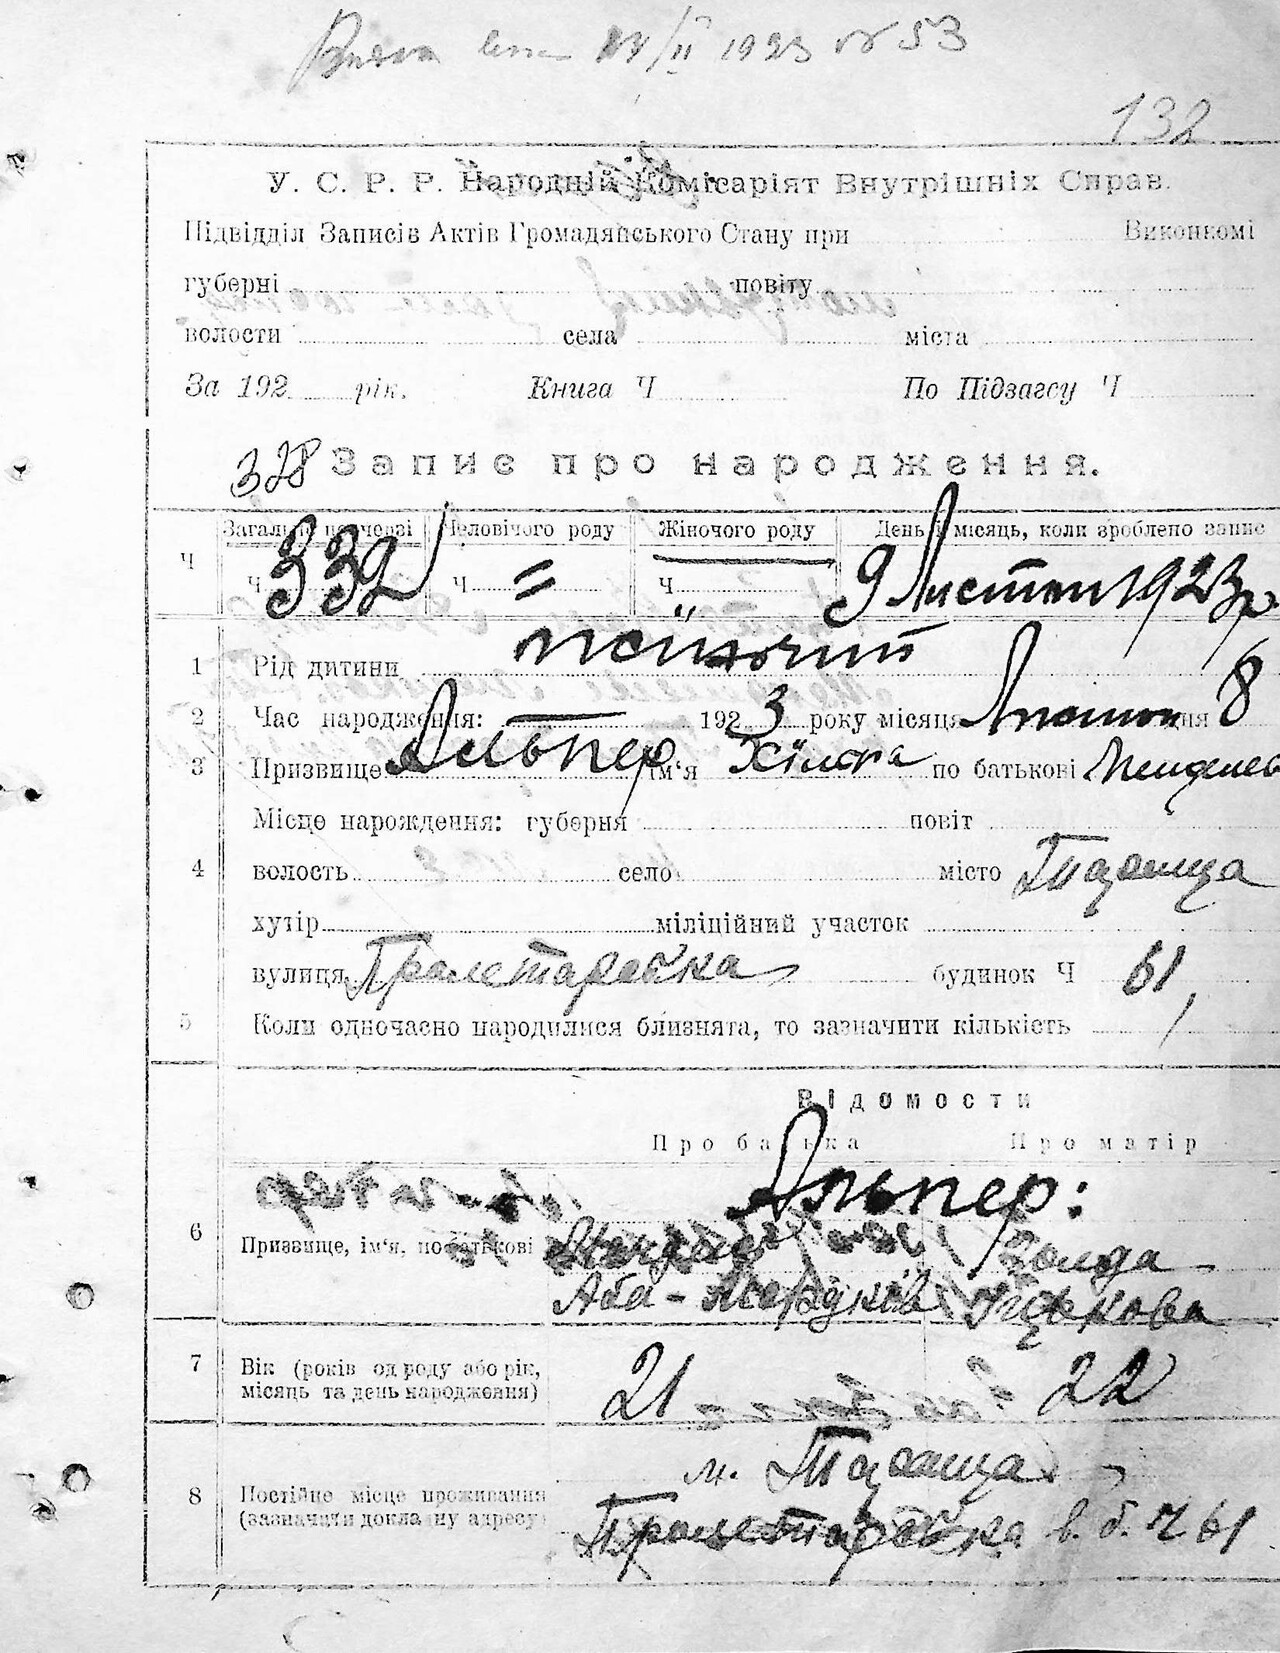 1923 № 53
132
У. С. Р. Р. Народній Комісаріят Внутрішніх Справ.
Підвідділ Записів Актів Громадянського Стану при Виконкомі
губерні повіту
волости села міста
За 192 рік. Книга Ч По Підзагсу Ч
328 Запис про народження.
Загальні по черзі Человічого роду Жіночого роду День і місяць, коли зроблено запис
Ч Ч 332 Ч = Ч 9 Листоп 1923 р
1 Рід дитини жіночий
2 Час народження: 1923 року місяця Листоп дня 8
3 Призвище Альпер ім'я по батькові Менделев
Місце народження: губерня повіт
4 волость село місто Тараща
хутір міліційний участок
вулиця Пролетарська будинок Ч 61
5 Коли одночасно народилися близнята, то зазначити кількість
Відомости
Про батька Про матір
Альпер:
6 Призвище, ім'я, по батькові Голда
Аба- Іцькова
7 Вік (років од роду або рік, 21 22
місяць та день народження)
м. Тараща
8 Постійне місце проживання
(зазначати докладну адресу) Пролетарська в. б. Ч 61